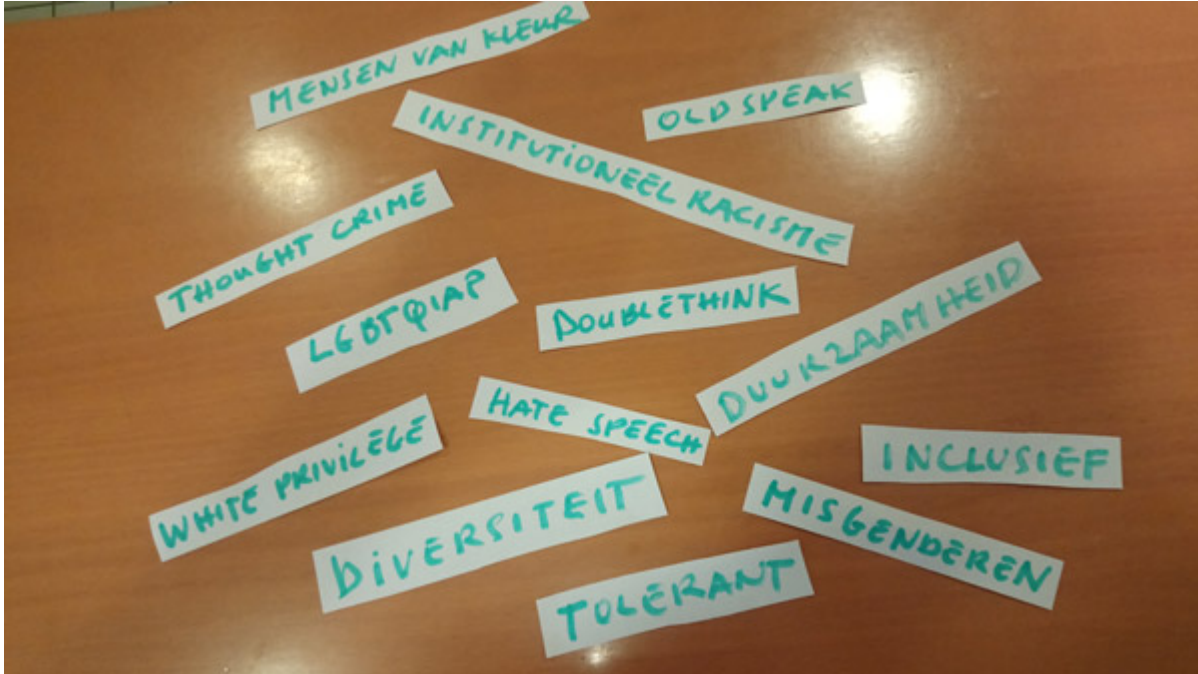 MENSEN VAN KLEUR
OLDSPEAK
INSTITUTIONEEL RACISME
THOUGHT CRIME
LGBTQIAP
DOUBLETHINK
DUURZAAMHEID
HATE SPEECH
WHITE PRIVILEGE
INCLUSIEF
DIVERSITEIT
MISGENDEREN
TOLERANT